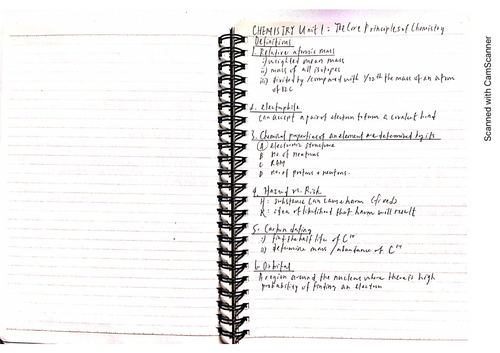 CHEMISTRY Unit 1: The Core Principles of Chemistry
Definitions
1. Relative atomic mass
i) weighted mean mass
ii) mass of all isotopes
iii) divided by / compared with 1/12th the mass of an atom
of 12C
2. electrophile
Can accept a pair of electron to form a covalent bond
3. Chemical properties of an element are determined by its
(A) electronic structure
B no. of neutrons
C RAM
D no. of protons + neutrons.
4. Hazard vs. Risk
H: substance can cause harm (fixed)
R: idea of likelihood that harm will result
5. Carbon dating
i) find the half life of C14
ii) determine mass / abundance of C14
6. Orbital
A region around the nucleus where there is high
probability of finding an electron
Scanned with CamScanner